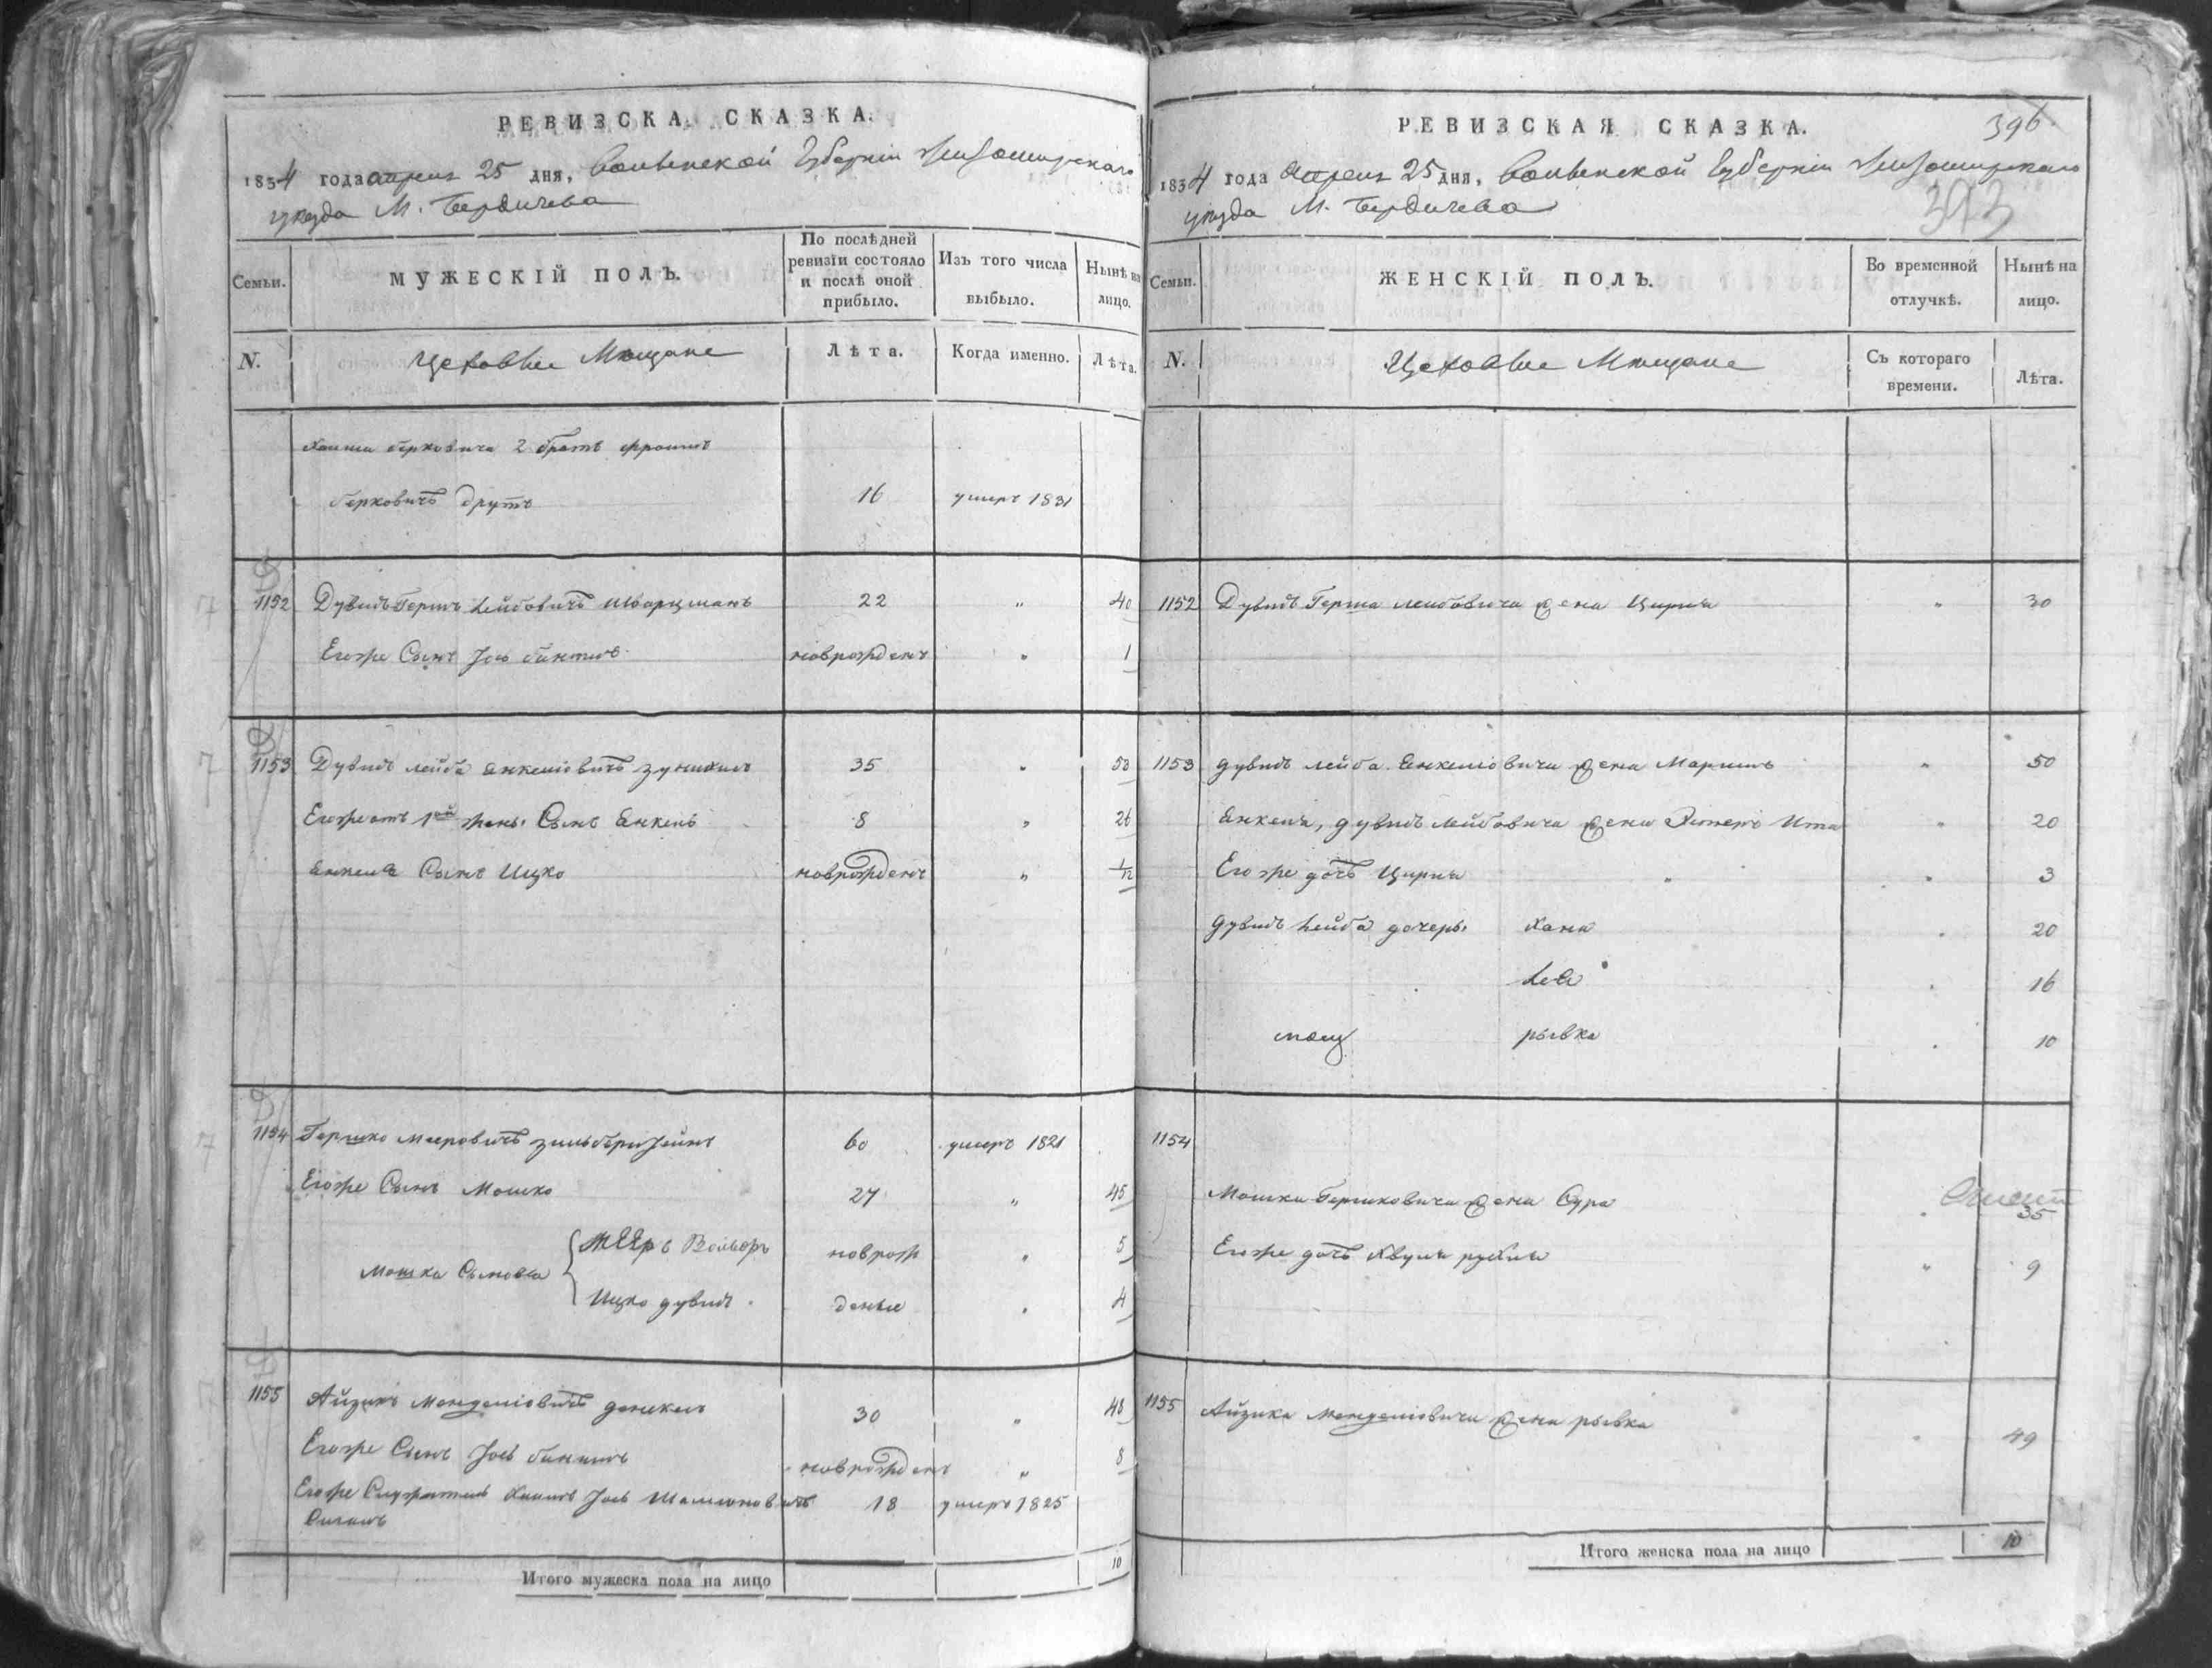 РЕВИЗСКА СКАЗКА.
1834 года апреля 25 дня, Волынской Губернии Житомирского
уезда М. Бердичева
Семьи.
МУЖЕСКІЙ ПОЛЪ.
По послѣдней ревизіи состояло и послѣ оной прибыло.
Изъ того числа выбыло.
Нынѣ на лицо.
N.
Цеховые Мещане
Лѣта.
Когда именно.
Лѣта.
Хаима Берковича 2 братъ Фроимъ
Берковичъ Друтъ 16 умеръ 1831
1152 Дувидъ Гершъ Лейбовичъ Шварцманъ 22 " 40
Егоже Сынъ Іось новорожденъ " 1
1153 Дувидъ Лейба Янкелiовичъ 35 " 53
Егоже отъ 1ой жены Сынъ Янкель 8 " 26
Янкеля Сынъ Ицко новрожденъ " 1/12
1154 Гершко Мееровичъ Зильберштейнъ 60 умеръ 1821
Егоже Сынъ Мошко 27 " 45
Мееръ Вольфъ новрож " 5
Мошка Сыновья
Ицко Дувидъ деные " 4
1155 Айзикъ Менделiовичъ 30 " 48
Егоже Сынъ Іось новрожденъ " 8
Егоже Хаимъ Іось Шамшоновичъ 18 умеръ 1825
Итого мужеска пола на лицо 10
РЕВИЗСКАЯ СКАЗКА.
396
1834 года апреля 25 дня, Волынской Губернии Житомирского
уезда М. Бердичева
393
Семьи.
ЖЕНСКІЙ ПОЛЪ.
Во временной отлучкѣ.
Нынѣ на лицо.
N.
Цеховые Мещане
Съ котораго времени.
Лѣта.
1152 Дувидъ Герша Лейбовича жена Цирля " 30
1153 Дувидъ Лейба Янкелiовича жена Маримъ " 50
Янкеля, Дувидъ Лейбовича жена Эстеръ Ита " 20
Егоже дочь Цирля " " 3
Дувидъ Лейба дочери Хана " 20
Лея " 16
рывка " 10
1154
Мошка Гершковича жена Сура " 35
Егоже дочь " 9
1155 Айзика Менделiовича жена рывка " 49
Итого женска пола на лицо 10